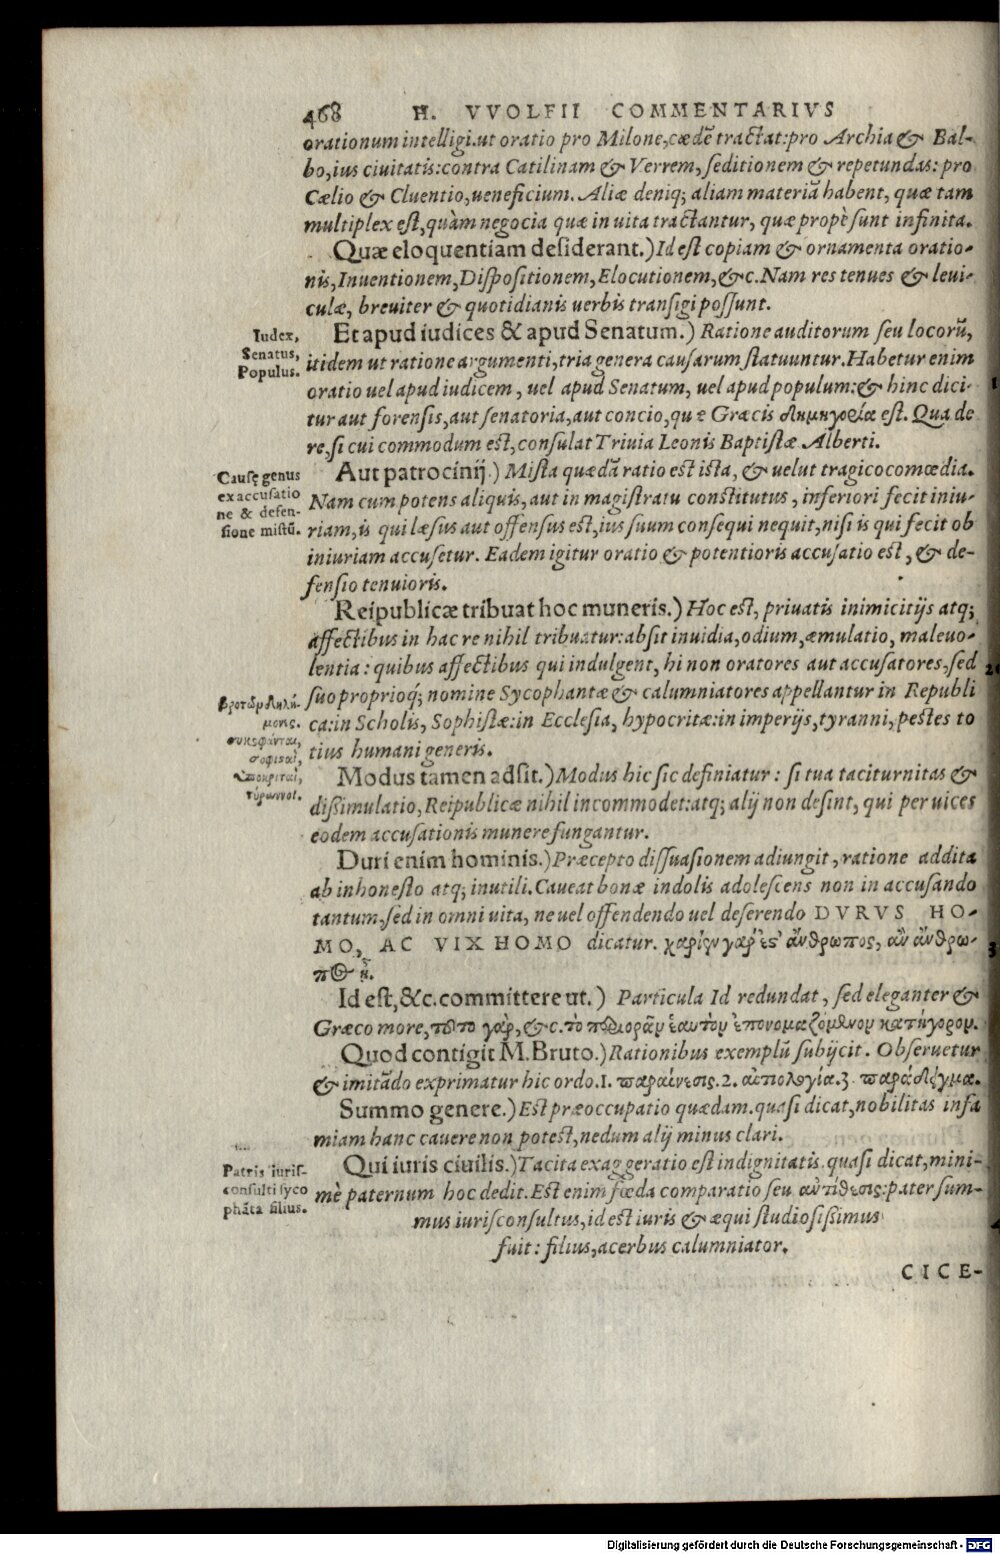 468 H. VVOLFII COMMENTARIVS
orationum intelligi.ut oratio pro Milone,cædẽ tractat:pro Archia & Bal-
bo,ius ciuitatis:contra Catilinam & Verrem, seditionem & repetundas: pro
Cælio & Cluentio,ueneficium. Aliæ deniq; aliam materiã habent, quæ tam
multiplex est,quàm negocia quæ in uita tractantur, quæ propè sunt infinita.
Quæ eloquentiam desiderant.) Id est copiam & ornamenta oratio-
nis, Inuentionem, Dispositionem, Elocutionem,&c. Nam res tenues & leui-
culæ, breuiter & quotidianis uerbis transigi possunt.
Iudex,
Senatus,
Populus.
Et apud iudices & apud Senatum.) Ratione auditorum seu locorũ,
itidem ut ratione argumenti,tria genera causarum statuuntur. Habetur enim
oratio uel apud iudicem, uel apud Senatum, uel apud populum:& hinc dici-
tur aut forensis,aut senatoria,aut concio,quæ Græcis δημηγορία est. Qua de
re,si cui commodum est,consulat Triuia Leonis Baptistæ Alberti.
Causę genus
ex accusatio
ne & defen-
sione mistũ.
Aut patrocinij.) Mista quædã ratio est ista, & uelut tragicocomœdia.
Nam cum potens aliquis,aut in magistratu constitutus, inferiori fecit iniu-
riam,is qui læsus aut offensus est,ius suum consequi nequit,nisi is qui fecit ob
iniuriam accusetur. Eadem igitur oratio & potentioris accusatio est, & de-
fensio tenuioris.
Reipublicæ tribuat hoc muneris.) Hoc est, priuatis inimicitijs atq;
affectibus in hac re nihil tribuatur:absit inuidia,odium,æmulatio, maleuo-
lentia: quibus affectibus qui indulgent, hi non oratores aut accusatores,sed
suo proprioq́; nomine Sycophantæ & calumniatores appellantur in Republi
ca:in Scholis, Sophistæ:in Ecclesia, hypocritæ:in imperijs,tyranni,pestes to
tius humani generis.
βροτῶν δηλή-
μονες.
συκοφάνται,
σοφισαὶ,
ὑποκριταὶ,
τύραννοι.
Modus tamen adsit.) Modus hic sic definiatur: si tua taciturnitas &
dissimulatio, Reipublicæ nihil incommodet:atq; alij non desint, qui per uices
eodem accusationis munere fungantur.
Duri enim hominis.) Præcepto dissuasionem adiungit, ratione addita
ab inhonesto atq; inutili. Caueat bonæ indolis adolescens non in accusando
tantum,sed in omni uita, ne uel offendendo uel deserendo DVRVS HO-
MO, AC VIX HOMO dicatur. χαρίεν γαρ ἐς' ἄνθρωπος, ἂν ἄνθρω-
πος ᾖ.
Id est,&c. committere ut.) Particula Id redundat, sed eleganter &
Græco more, τοῦτο γὰρ, &c. τὸ περιορᾶν ἑαυτὸν ἐπονομαζόμενον κατήγορον.
Quod contigit M. Bruto.) Rationibus exemplũ subijcit. Obseruetur
& imitãdo exprimatur hic ordo.1. παραίνεσις.2. αἰτιολογία.3. παράδειγμα.
Summo genere.) Est præoccupatio quædam.quasi dicat,nobilitas infa
miam hanc cauere non potest,nedum alij minus clari.
Patris iuris-
consulti syco
phãta filius.
Qui iuris ciuilis.) Tacita exaggeratio est indignitatis.quasi dicat,mini-
mè paternum hoc dedit. Est enim fœda comparatio seu ἀντίθεσις:pater sum-
mus iurisconsultus,id est iuris & æqui studiosissimus
fuit: filius,acerbus calumniator.
CICE-
Digitalisierung gefördert durch die Deutsche Forschungsgemeinschaft - DFG